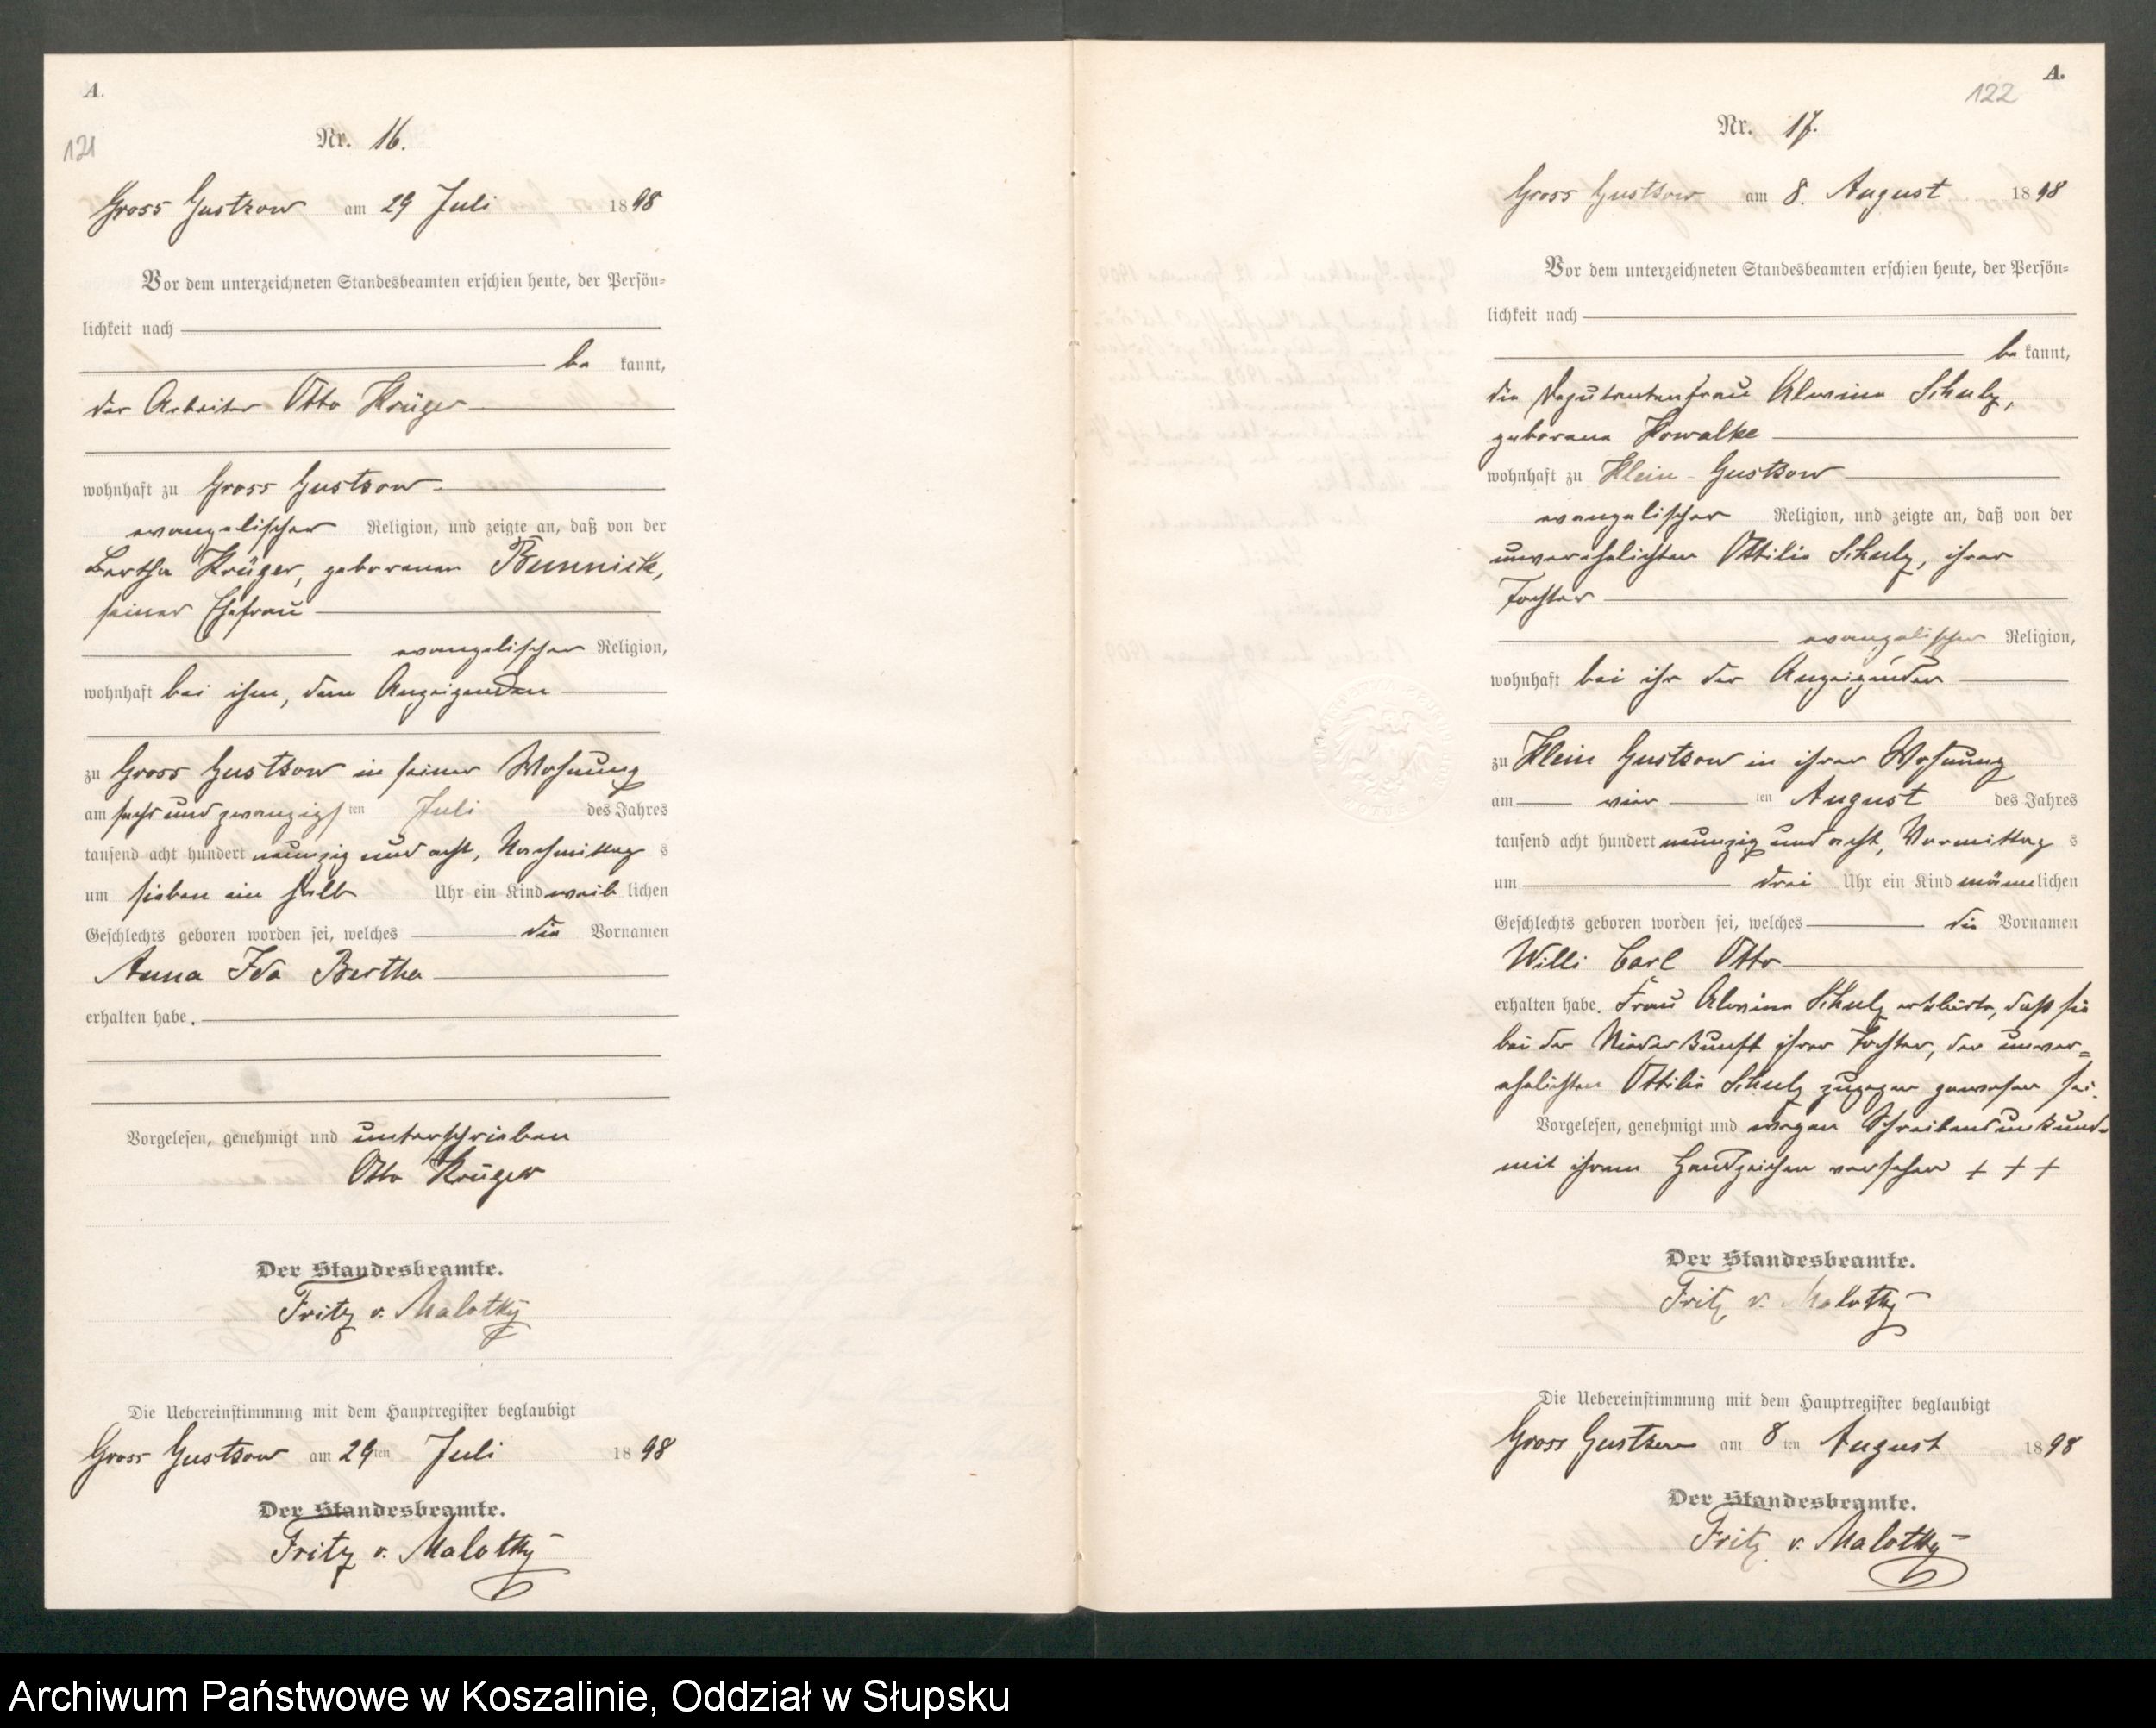 A.
121
Nr. 16.
Gross Gustkow am 29 Juli 1898
Vor dem unterzeichneten Standesbeamten erschien heute, der Persön-
lichkeit nach
be kannt,
der Arbeiter Otto Krüger
wohnhaft zu Gross Gustkow
evangelischer Religion, und zeigte an, daß von der
Bertha Krüger, geborenen
seiner Ehefrau
evangelischer Religion,
wohnhaft bei ihm, dem Anzeigenden
zu Gross Gustkow in seiner Wohnung
am sechs und zwanzigs ten Juli des Jahres
tausend acht hundert neunzig und acht, Nachmittag s
um sieben ein halb Uhr ein Kind weib lichen
Geschlechts geboren worden sei, welches die Vornamen
Anna Ida Bertha
erhalten habe.
Vorgelesen, genehmigt und unterschrieben
Otto Krüger
Der Standesbeamte.
Fritz v. Malotky
Die Uebereinstimmung mit dem Hauptregister beglaubigt
Gross Gustkow am 29ten Juli 1898
Der Standesbeamte.
Fritz v. Malotky
A.
122
Nr. 17.
Gross Gustkow am 8. August 1898
Vor dem unterzeichneten Standesbeamten erschien heute, der Persön-
lichkeit nach
be kannt,
die Deputantenfrau Alwine Schulz,
geborene Kowalke
wohnhaft zu Klein-Gustkow
evangelischer Religion, und zeigte an, daß von der
unverehelichten Ottilie Schulz, ihrer
Tochter
evangelischer Religion,
wohnhaft bei ihr der Anzeigenden
zu Klein Gustkow in ihrer Wohnung
am vier ten August des Jahres
tausend acht hundert neunzig und acht, Vormittag s
um drei Uhr ein Kind männ lichen
Geschlechts geboren worden sei, welches die Vornamen
Willi Carl Otto
erhalten habe. Frau Alwine Schulz erklärte, daß sie
bei der Niederkunft ihrer Tochter, der unver=
ehelichten Ottilie Schulz zugegen gewesen sei.
Vorgelesen, genehmigt und wegen Schreibensunkunde
mit ihrem Handzeichen versehen + + +
Der Standesbeamte.
Fritz v. Malotky
Die Uebereinstimmung mit dem Hauptregister beglaubigt
Gross Gustkow am 8ten August 1898
Der Standesbeamte.
Fritz v. Malotky
Archiwum Państwowe w Koszalinie, Oddział w Słupsku